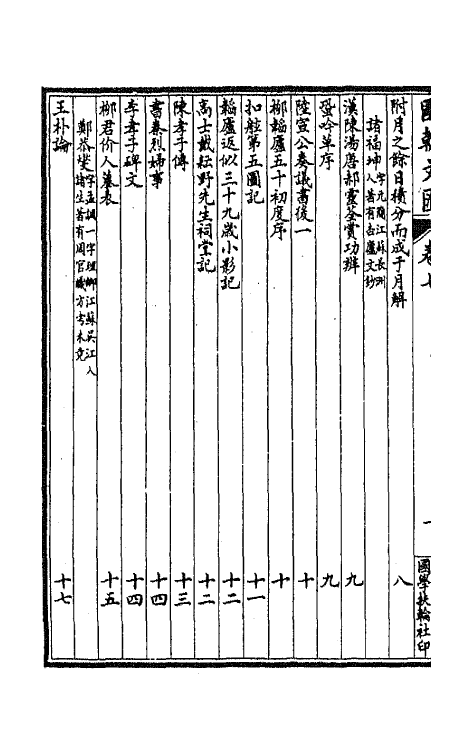 國朝文匯 卷七 一 國學扶輪社印
附月之餘日積分而成于月解 八
諸福坤 字元簡江蘇長洲人著有古廬文鈔
漢陳湯唐郝靈荃賞功辨 九
蛩吟草序 九
陸宣公奏議書後一 十
柳韜廬五十初度序 十
扣舷第五圖記 十一
韜廬返似三十九歲小影記 十二
高士戴耘野先生祠堂記 十二
陳孝子傳 十三
書秦烈婦事 十四
李孝子碑文 十四
柳君价人墓表 十五
鄭恭燮 字孟調一字理卿江蘇吳江人諸生著有周官職方考未竟
王朴論 十七